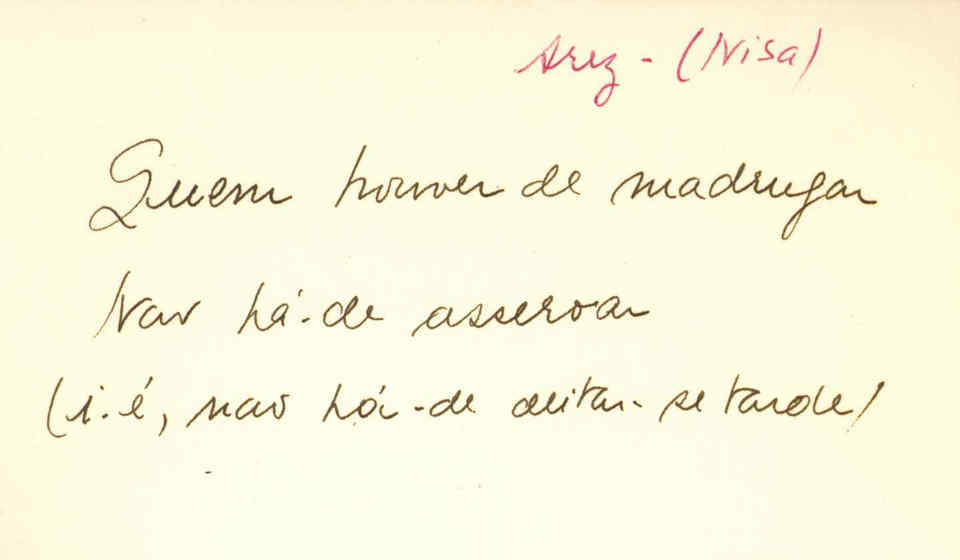 Arez - (Nisa)
Quem houver de madrugar
Não há-de asseroar
(i.é, não há-de deitar-se tarde)